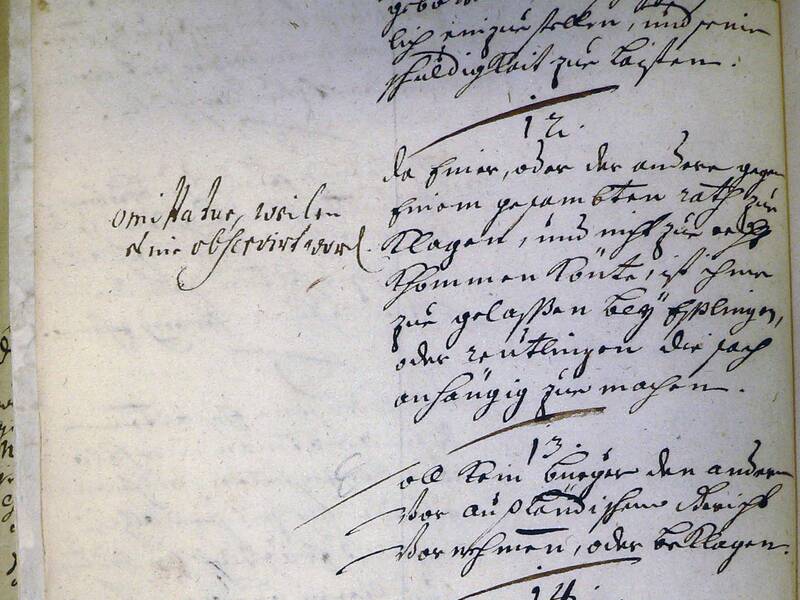 lich einzustellen, und seine
schuldigkeit zue laisten.
12.
da Einer, oder der andere gegen
Einem gesambten rath zue
Klagen, und nicht zue recht
Khommen Könte, ist ihme
zue gelassen bey Esslingen,
oder reütlingen die sach
anhängig zue machen.
omittatur, weilen
nie observirt word.
13.
soll Kein burger den andern
Vor außländischem Gericht
Vornehmen, oder beKlagen.
14.